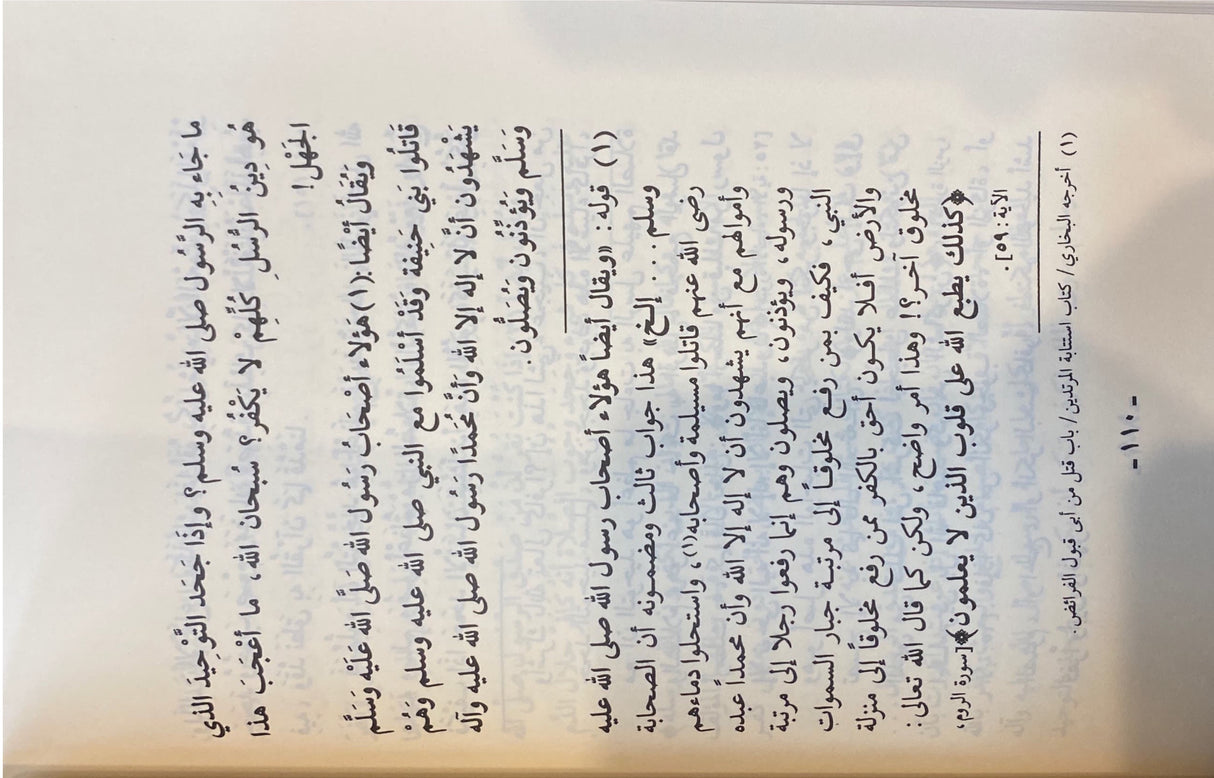 ما جَاء بِهِ الرَّسُول صلى الله عليه وسلم؟ وإِذَا جَحَد التَّوْحِيدَ الذي
هُو دِينُ الرُّسُلِ كُلِّهِمْ لا يَكْفُر؟ سُبحان الله، ما أَعْجَبَ هذا
الجَهْل!
وَيُقَالُ أَيْضًا:(١) هَؤلاء أَصْحَابُ رَسُول الله صَلَّى الله عَلَيْه وَسَلَّم
قَاتَلُوا بَني حَنِيفة وَقَدْ أَسْلَمُوا مع النبي صلى الله عليه وسلم وَهُمْ
يَشْهَدُون أَنَّ لا إله إلا الله وَأَنَّ مُحَمدًا رَسُول الله صلى الله عليه وآله
وَسَلَّم وَيُؤَذِّنُون وَيُصَلُّون.
(١) قوله: «ويقال أيضاً هؤلاء أصحاب رسول الله صلى الله عليه
وسلم.... إلـخ» هذا جواب ثالث ومضمونه أن الصحابة
رضى الله عنهم قاتلوا مسيلمة وأصحابه(١)، واستحلوا دماءهم
وأموالهم مع أنهم يشهدون أن لا إله إلا الله وأن محمداً عبده
ورسوله، ويؤذنون، ويصلون وهم إنما رفعوا رجلا إلى مرتبة
النبي، فكيف بمن رفـع مخلوقـاً إلى مرتبـة جبار السموات
والأرض أفـلا يكـون أحق بالكفر ممن رفع مخلوقاً إلى منزلة
مخلوق آخـر؟! وهذا أمر واضح، ولكن كما قال الله تعالى:
﴿كذلك يطبع الله على قلوب الذين لا يعلمون﴾[سورة الروم،
الآية: ٥٩].
(١) أخرجه البخاري/ كتاب استتابة المرتدين/ باب قتل من أبى قبول الفرائض.
- ١١٠ -